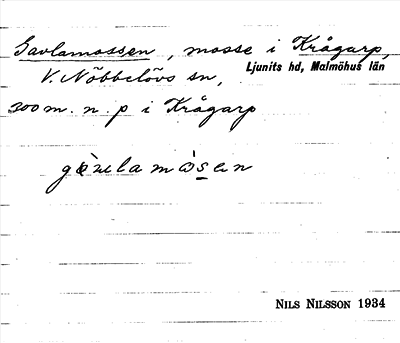 Gavlamossen, mosse i Krågarp,
V. Nöbbelövs sn, Ljunits hd, Malmöhus län
200 m. n. p i Krågarp
NILS NILSSON 1934